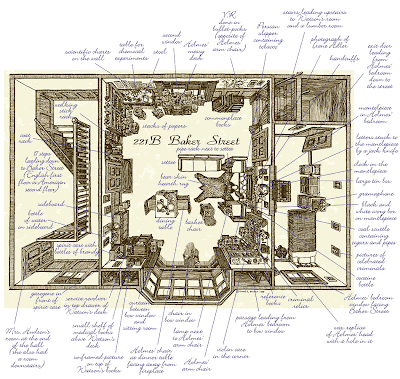 scientific charts
on the wall
table for
chemical
experiments
second
window
stool
Holmes'
messy
desk
V.R.
done in
bullet pocks
(opposite of
Holmes'
arm chair)
Persian
slipper
containing
tobacco
stairs leading upstairs
to Watson's room
and a lumber room
photograph of
Irene Adler
handcuffs
exit door
leading
from
Holmes'
bedroom
down to
the street
walking
stick
coat
rack
stacks of papers
commonplace
books
221B Baker Street
pipe rack next to settee
settee
bear skin
hearth rug
dining
table
basket
chair
mantelpiece
in Holmes'
bedroom
letters stuck to
the mantelpiece
by a jack knife
clock on the
mantelpiece
large tin box
gramophone
black and
white ivory box
on mantelpiece
coal scuttle
containing
cigars and pipes
pictures of
celebrated
criminals
cocaine
bottle
17 steps
leading down
to Baker Street
(English first
floor is American
second floor)
sideboard
bottle
of water
on sideboard
spirit case with
bottles of brandy
gasogene in
front of
spirit case
service revolver
in top drawer of
Watson's desk
curtain
between
bow window
and
sitting room
chair in
bow window
lamp next
to Holmes'
arm chair
reference
books
criminal
relics
Holmes' bedroom
window facing
Baker Street
passage leading from
Holmes' bedroom
to bow window
Mrs. Hudson's
room at the end
of the hall
(she also had
a room
downstairs)
small shelf of
medical books
above Watson's
desk
unframed picture
on top of
Watson's books
Holmes' chair
at dinner table
facing away from
fireplace
Holmes'
arm chair
violin case
in the corner
wax replica
of Holmes' head
with a hole in it